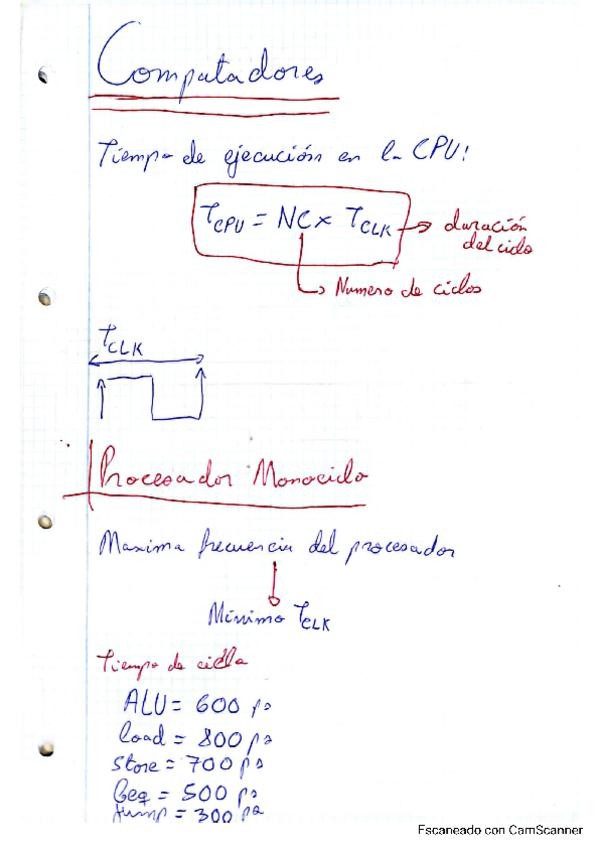 Computadores
Tiempo de ejecución en la CPU:
TCPU = NC x TCLK → duración
del ciclo
→ Numero de ciclos
TCLK
Procesador Monociclo
Maxima frecuencia del procesador
Mínimo TCLK
Tiempo de ciclo
ALU = 600 ps
load = 800 ps
store = 700 ps
beq = 500 ps
Jump = 300 ps
Escaneado con CamScanner